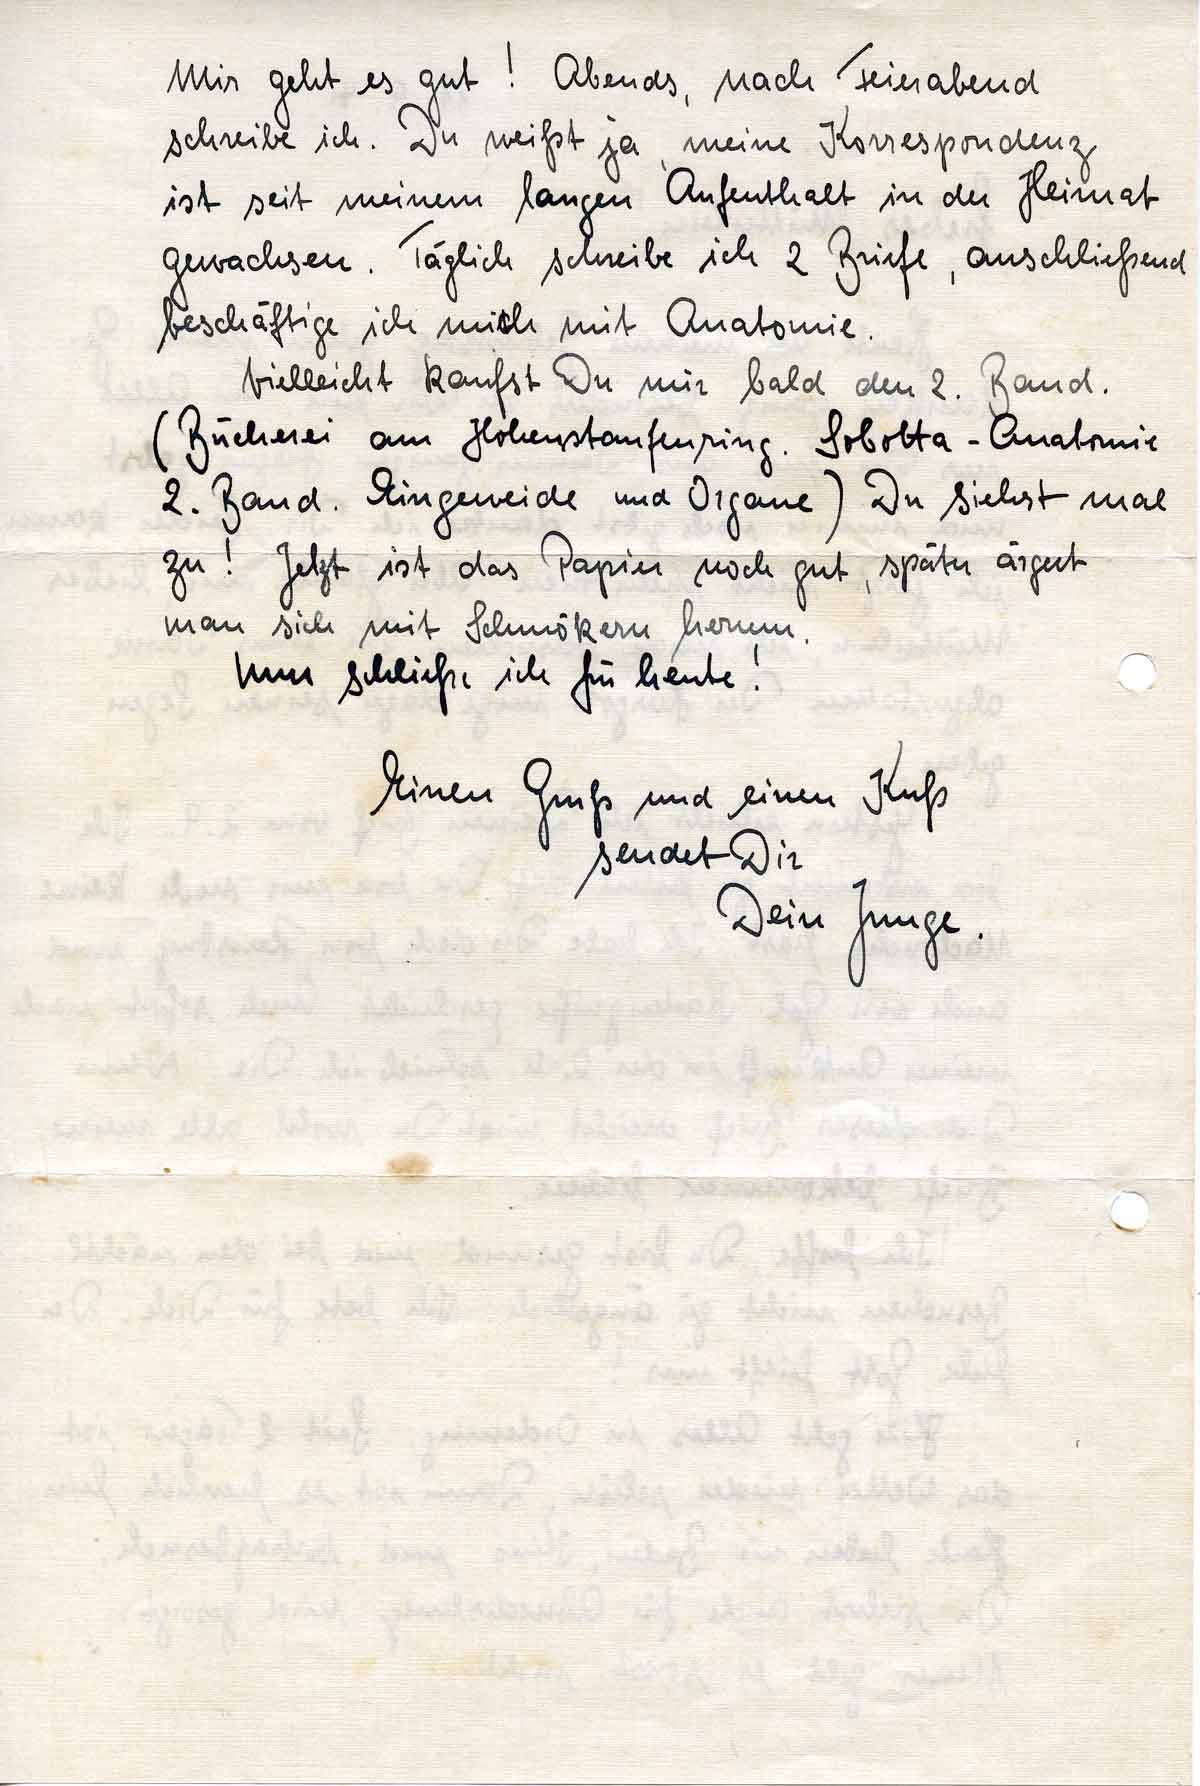 Mir geht es gut! Abends, nach Feierabend
schreibe ich. Du weißt ja, meine Korrespondenz
ist seit meinem langen Aufenthalt in der Heimat
gewachsen. Täglich schreibe ich 2 Briefe, anschließend
beschäftige ich mich mit Anatomie.
Vielleicht kaufst Du mir bald den 2. Band.
(Bücherei am Hohenstaufenring. Sobotta-Anatomie
2. Band. Eingeweide und Organe) Du siehst mal
zu! Jetzt ist das Papier noch gut, später ärgert
man sich mit Schmökern herum.
Nun schließe ich für heute!
Einen Gruß und einen Kuß
sendet Dir
Dein Junge.